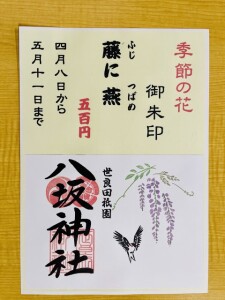 季節の花
御朱印
ふじ つばめ
藤に燕
五百円
四月八日から
五月十一日まで
世良田祇園
八坂神社